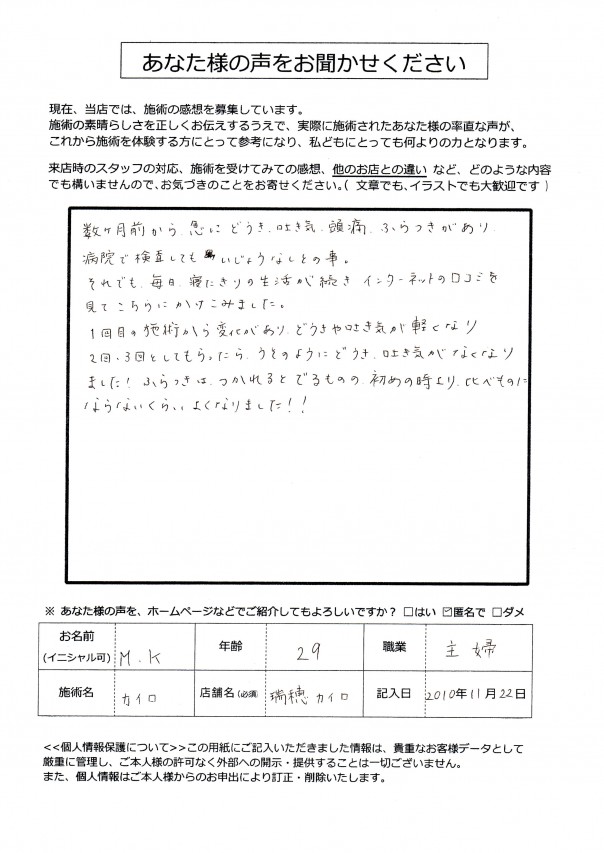 あなた様の声をお聞かせください
現在、当店では、施術の感想を募集しています。
施術の素晴らしさを正しくお伝えするうえで、実際に施術されたあなた様の率直な声が、
これから施術を体験する方にとって参考になり、私どもにとっても何よりの力となります。
来店時のスタッフの対応、施術を受けてみての感想、他のお店との違い など、どのような内容
でも構いませんので、お気づきのことをお寄せください。( 文章でも、イラストでも大歓迎です )
数ヶ月前から、急に どうき、吐き気、頭痛、ふらつきがあり、
病院で検査しても いじょうなしとの事。
それでも、毎日、寝たきりの生活が続き インターネットの口コミを
見てこちらにかけこみました。
1回目の施術から変化があり、どうきや吐き気が軽くなり
2回、3回としてもらったら、うそのようにどうき、吐き気がなくなり
ました! ふらつきは、つかれるとでるものの、初めの時より、比べものに
ならないくらい よくなりました!!
※ あなた様の声を、ホームページなどでご紹介してもよろしいですか? □はい ☑匿名で □ダメ
お名前 (イニシャル可) M.K 年齢 29 職業 主婦
施術名 カイロ 店舗名(必須) 瑞穂カイロ 記入日 2010年11月22日
<<個人情報保護について>>この用紙にご記入いただきました情報は、貴重なお客様データとして
厳重に管理し、ご本人様の許可なく外部への開示・提供することは一切ございません。
また、個人情報はご本人様からのお申出により訂正・削除いたします。